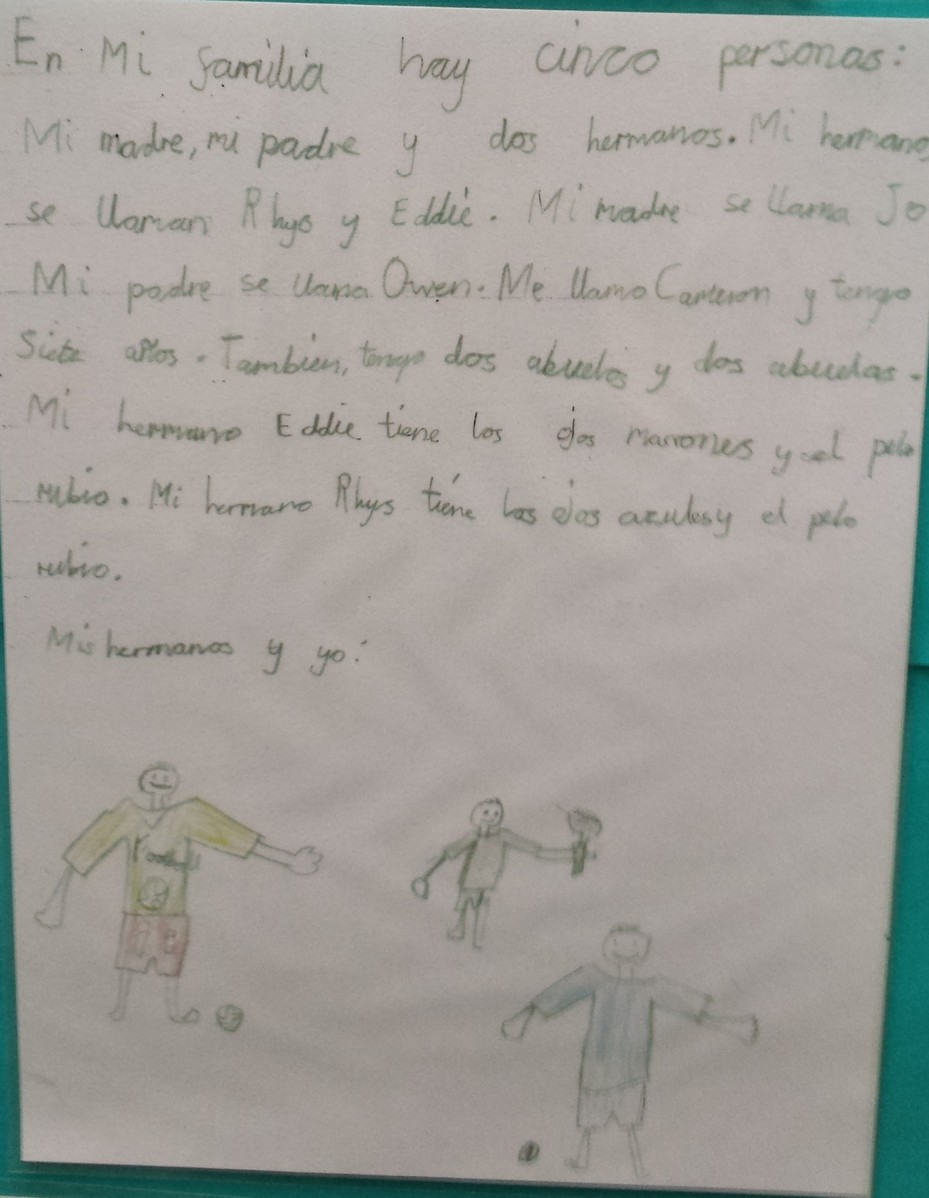 En Mi familia hay cinco personas:
Mi madre, mi padre y dos hermanos. Mi hermano
se llaman Rhys y Eddie. Mi madre se llama Jo
Mi padre se llama Owen. Me llamo Cameron y tengo
Siete años. Tambien, tengo dos abuelos y dos abuelas.
Mi hermano Eddie tiene los ojos marrones y el pelo
rubio. Mi hermano Rhys tiene los ojos azules y el pelo
rubio.
Mis hermanos y yo:
Football